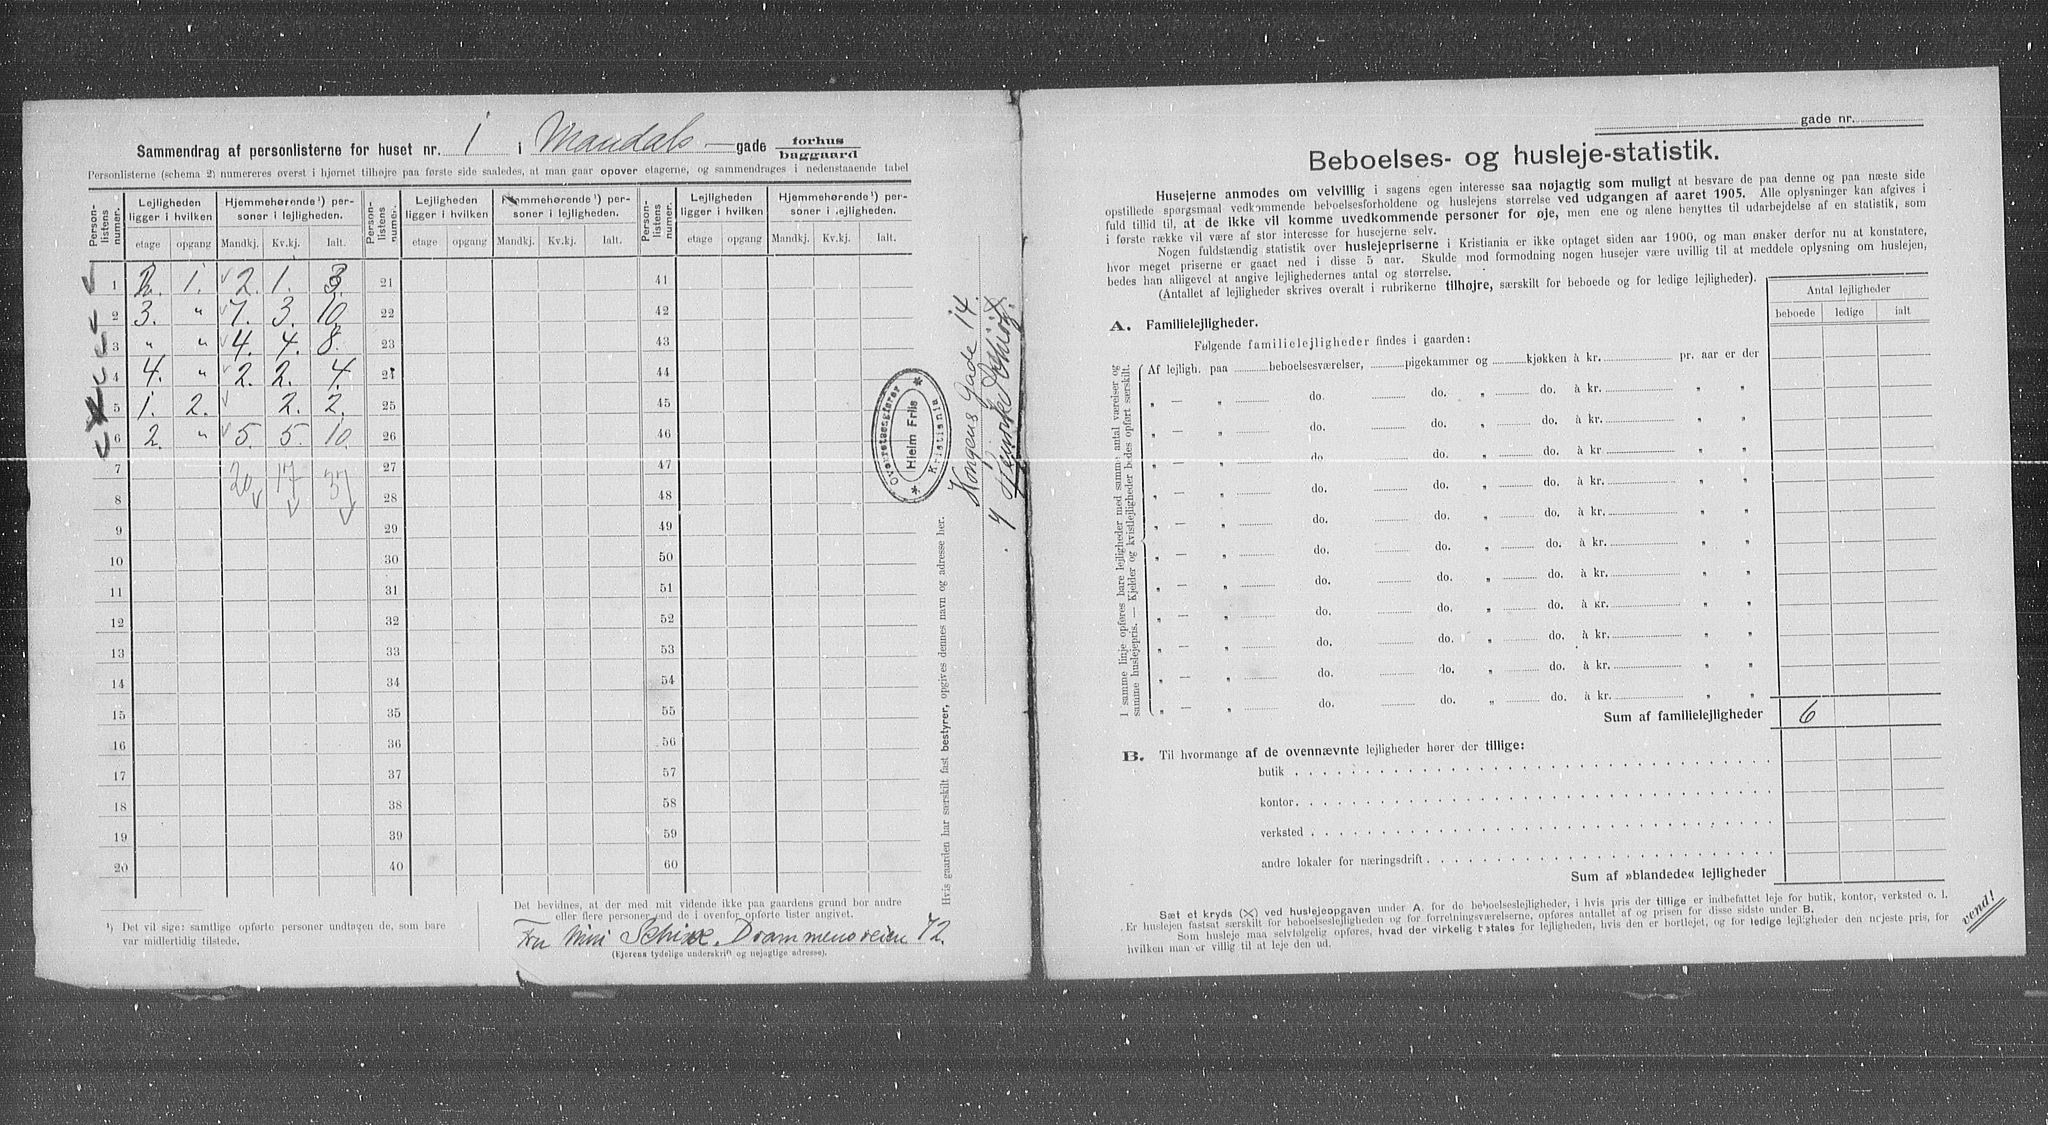 Sammendrag af personlisterne for huset nr. 1 i Mandals-gade forhus
baggaard
Personlisterne (schema 2) numereres øverst i hjørnet tilhøjre paa første side saaledes, at man gaar opover etagerne, og sammendrages i nedenstaaende tabel
Person-listens nummer. Lejligheden ligger i hvilken Hjemmehørende¹) personer i lejligheden. Person-listens nummer. Lejligheden ligger i hvilken Hjemmehørende¹) personer i lejligheden. Person-listens nummer. Lejligheden ligger i hvilken Hjemmehørende¹) personer i lejligheden.
etage opgang Mandkj. Kv.kj. Ialt. etage opgang Mandkj. Kv.kj. Ialt. etage opgang Mandkj. Kv.kj. Ialt.
1 2. 1. 2. 1. 3. 21 41
2 3. " 7. 3. 10. 22 42
3 " " 4. 4. 8. 23 43
4 4. " 2. 2. 4. 24 44
5 1. 2. 2. 2. 25 45
6 2. " 5. 5. 10. 26 46
7 20 17 37 27 47
8 28 48
9 29 49
10 30 50
11 31 51
12 32 52
13 33 53
14 34 54
15 35 55
16 36 56
17 37 57
18 38 58
19 39 59
20 40 60
¹) Det vil sige: samtlige opførte personer undtagen de, som bare
var midlertidig tilstede.
Det bevidnes, at der med mit vidende ikke paa gaardens grund bor andre
eller flere personer end de i ovenfor opførte lister angivet.
Fru Drammensveien 72.
(Ejerens tydelige underskrift og nøjagtige adresse).
Hvis gaarden har særskilt fast bestyrer, opgives dennes navn og adresse her.
Overretssagfører
Hjelm Friis
Kristiania
Kongens Gade 14.
gade nr.
Beboelses- og husleje-statistik.
Husejerne anmodes om velvillig i sagens egen interesse saa nøjagtig som muligt at besvare de paa denne og paa næste side
opstillede spørgsmaal vedkommende beboelsesforholdene og huslejens størrelse ved udgangen af aaret 1905. Alle oplysninger kan afgives i
fuld tillid til, at de ikke vil komme uvedkommende personer for øje, men ene og alene benyttes til udarbejdelse af en statistik, som
i første række vil være af stor interesse for husejerne selv.
Nogen fuldstændig statistik over huslejepriserne i Kristiania er ikke optaget siden aar 1900, og man ønsker derfor nu at konstatere,
hvor meget priserne er gaaet ned i disse 5 aar. Skulde mod formodning nogen husejer være uvillig til at meddele oplysning om huslejen,
bedes han alligevel at angive lejlighedernes antal og størrelse.
(Antallet af lejligheder skrives overalt i rubrikerne tilhøjre, særskilt for beboede og for ledige lejligheder).
Antal lejligheder
beboede ledige ialt
A. Familielejligheder.
Følgende familielejligheder findes i gaarden:
I samme linje opføres bare lejligheder med samme antal værelser og
samme huslejepris. — Kjelder og kvistlejligheder bedes opført særskilt.
Af lejligh. paa beboelsesværelser, pigekammer og kjøkken à kr. pr. aar er der
" — " do. do. " do. à kr. " "
" — " do. do. " do. à kr. " "
" — " do. do. " do. à kr. " "
" — " do. do. " do. à kr. " "
" — " do. do. " do. à kr. " "
" — " do. do. " do. à kr. " "
" — " do. do. " do. à kr. " "
" — " do. do. " do. à kr. " "
" — " do. do. " do. à kr. " "
" — " do. do. " do. à kr. " "
" — " do. do. " do. à kr. " "
Sum af familielejligheder 6
B. Til hvormange af de ovennævnte lejligheder hører der tillige:
butik
kontor
verksted
andre lokaler for næringsdrift
Sum af »blandede« lejligheder
Sæt et kryds (×) ved huslejeopgaven under A. for de beboelseslejligheder, i hvis pris der tillige er indbefattet leje for butik, kontor, verksted o. l.
Er huslejen fastsat særskilt for beboelseslejligheder og for forretningsværelserne, opføres antallet af og prisen for disse sidste under B.
Som husleje maa selvfølgelig opføres, hvad der virkelig betales for lejligheden, hvis den er bortlejet, og for ledige lejligheder den nøjeste pris, for
hvilken man er villig til at leje den ud.
vend!